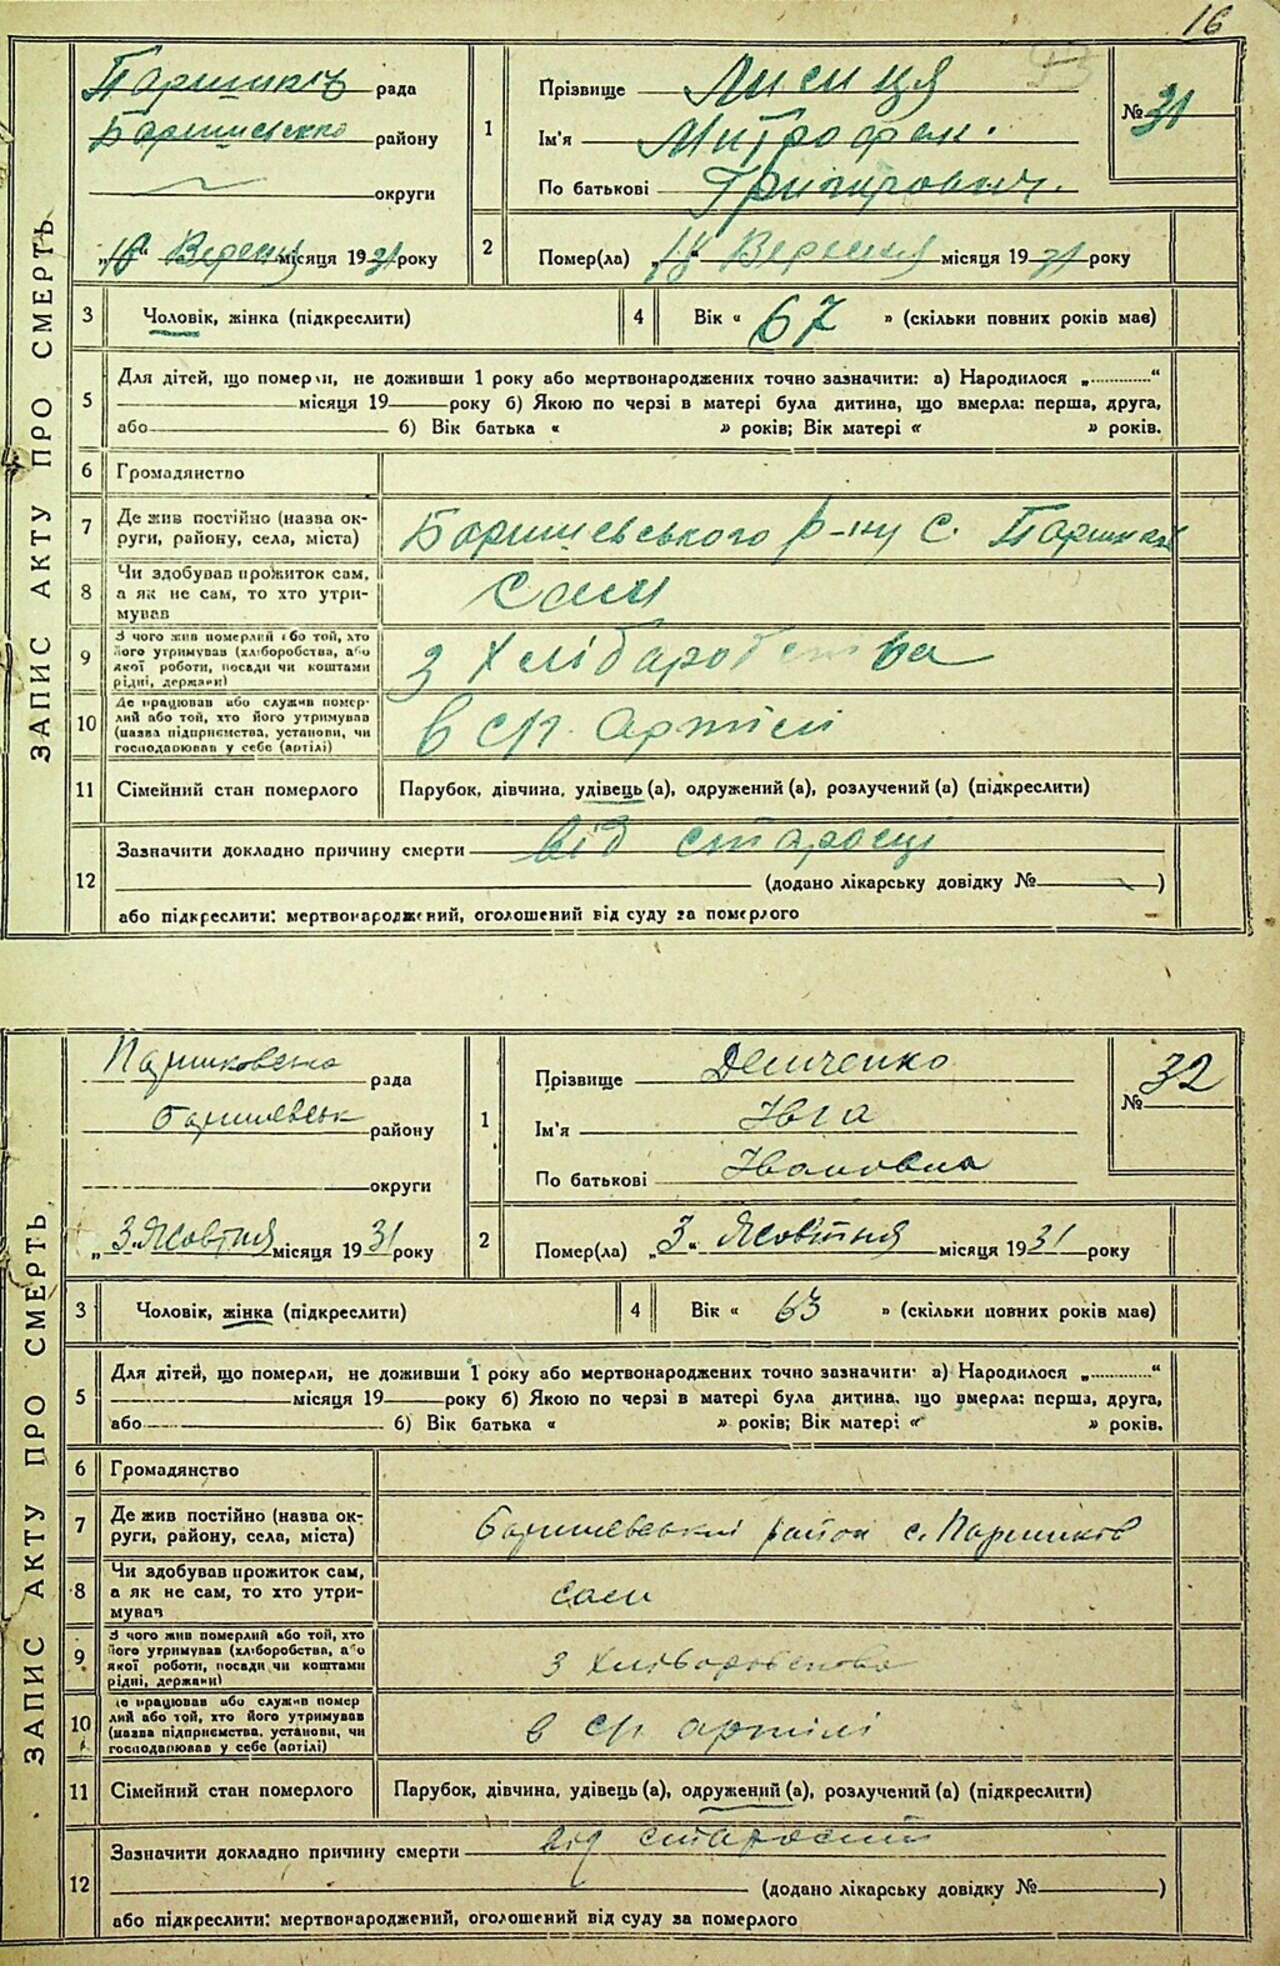 16
ЗАПИС АКТУ ПРО СМЕРТЬ
рада
району
округи
„18“ Вересня місяця 1931 року
1
Прізвище Лисиця
Ім'я Митрофан.
По батькові Григорович.
№ 31
2
Помер(ла) „18“ Вересня місяця 1931 року
3 Чоловік, жінка (підкреслити)
4 Вік « 67 » (скільки повних років мав)
5
Для дітей, що померли, не доживши 1 року або мертвонароджених точно зазначити: а) Народилося „............“
місяця 19 року б) Якою по черзі в матері була дитина, що вмерла: перша, друга,
або б) Вік батька « » років; Вік матері « » років.
6 Громадянство
7
Де жив постійно (назва ок-
руги, району, села, міста)
Баришевського р-ну с.
8
Чи здобував прожиток сам,
а як не сам, то хто утри-
мував
сам
9
З чого жив померлий або той, хто
його утримував (хліборобства, або
якої роботи, посади чи коштами
рідні, держави)
з Хлібаробства
10
Де працював або служив помер-
лий або той, хто його утримував
(назва підприємства, установи, чи
господарював у себе (артілі)
в с/г. артілі
11 Сімейний стан померлого
Парубок, дівчина, удівець (а), одружений (а), розлучений (а) (підкреслити)
12
Зазначити докладно причину смерти від старосці
(додано лікарську довідку № )
або підкреслити: мертвонароджений, оголошений від суду за померлого
ЗАПИС АКТУ ПРО СМЕРТЬ
Паришковська рада
Баришевськ району
округи
„3“ Жовтня місяця 1931 року
1
Прізвище Демченко
Ім'я Ївга
По батькові Івановна
№ 32
2
Помер(ла) „3“ Жовтня місяця 1931 року
3 Чоловік, жінка (підкреслити)
4 Вік « 63 » (скільки повних років мав)
5
Для дітей, що померли, не доживши 1 року або мертвонароджених точно зазначити: а) Народилося „............“
місяця 19 року б) Якою по черзі в матері була дитина, що вмерла: перша, друга,
або б) Вік батька « » років; Вік матері « » років.
6 Громадянство
7
Де жив постійно (назва ок-
руги, району, села, міста)
Баришевський район с. Паришків
8
Чи здобував прожиток сам,
а як не сам, то хто утри-
мував
сам
9
З чого жив померлий або той, хто
його утримував (хліборобства, або
якої роботи, посади чи коштами
рідні, держави)
з
10
Де працював або служив помер
лий або той, хто його утримував
(назва підприємства, установи, чи
господарював у себе (артілі)
в с/г артілі
11 Сімейний стан померлого
Парубок, дівчина, удівець (а), одружений (а), розлучений (а) (підкреслити)
12
Зазначити докладно причину смерти від
(додано лікарську довідку № )
або підкреслити: мертвонароджений, оголошений від суду за померлого